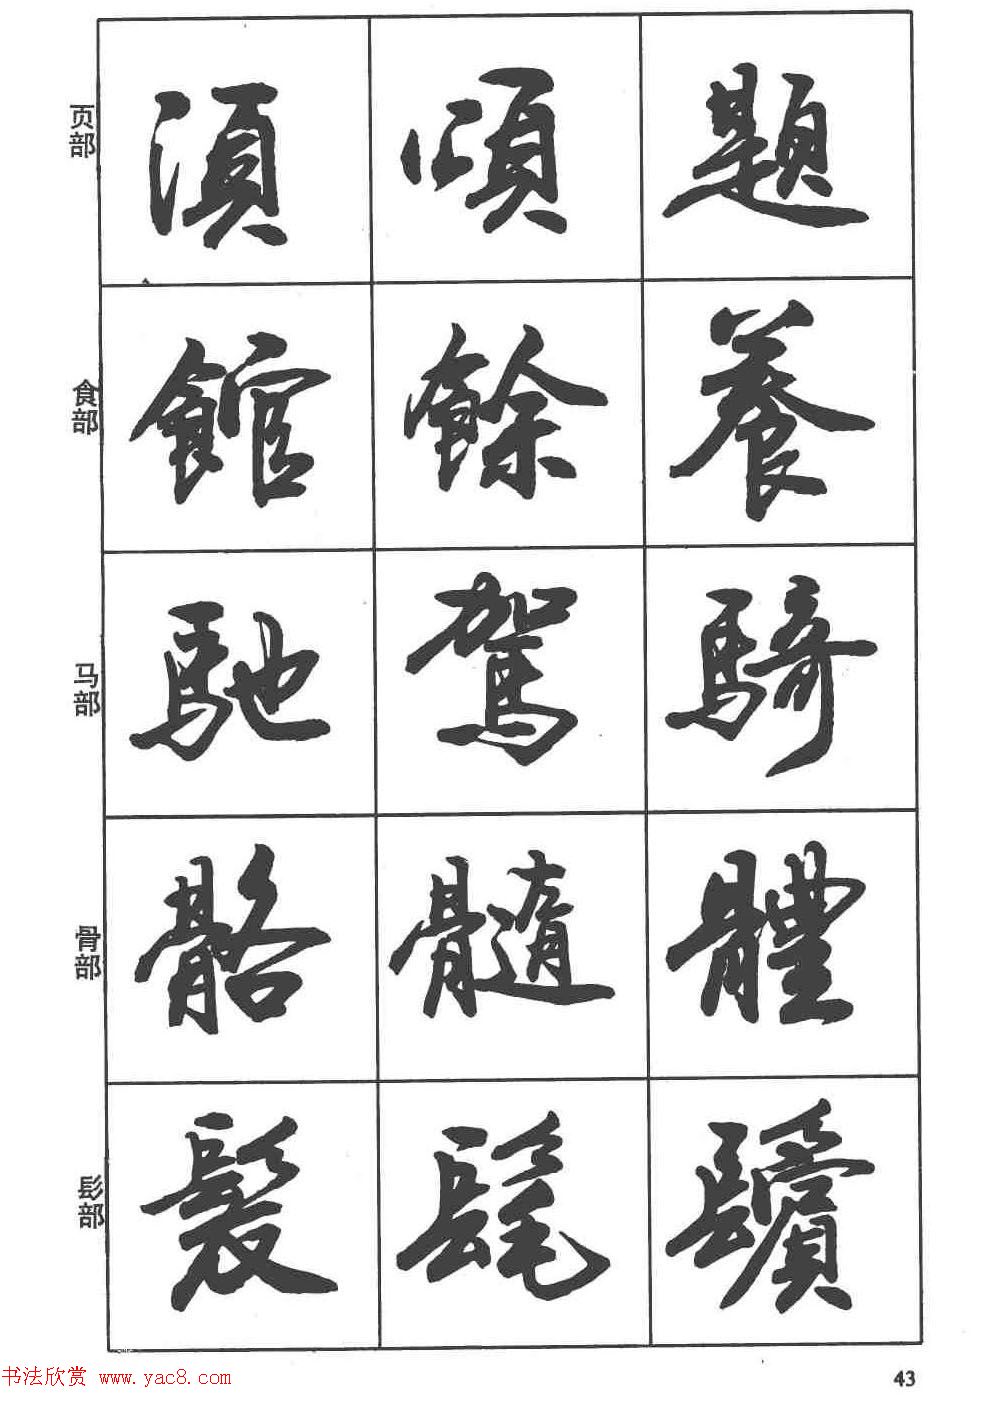 页部 須 頌 題
食部 館 餘 養
马部 馳 駕 騎
骨部 骼 髓 體
髟部 髮 髦 鬢
书法欣赏 www.yac8.com
43